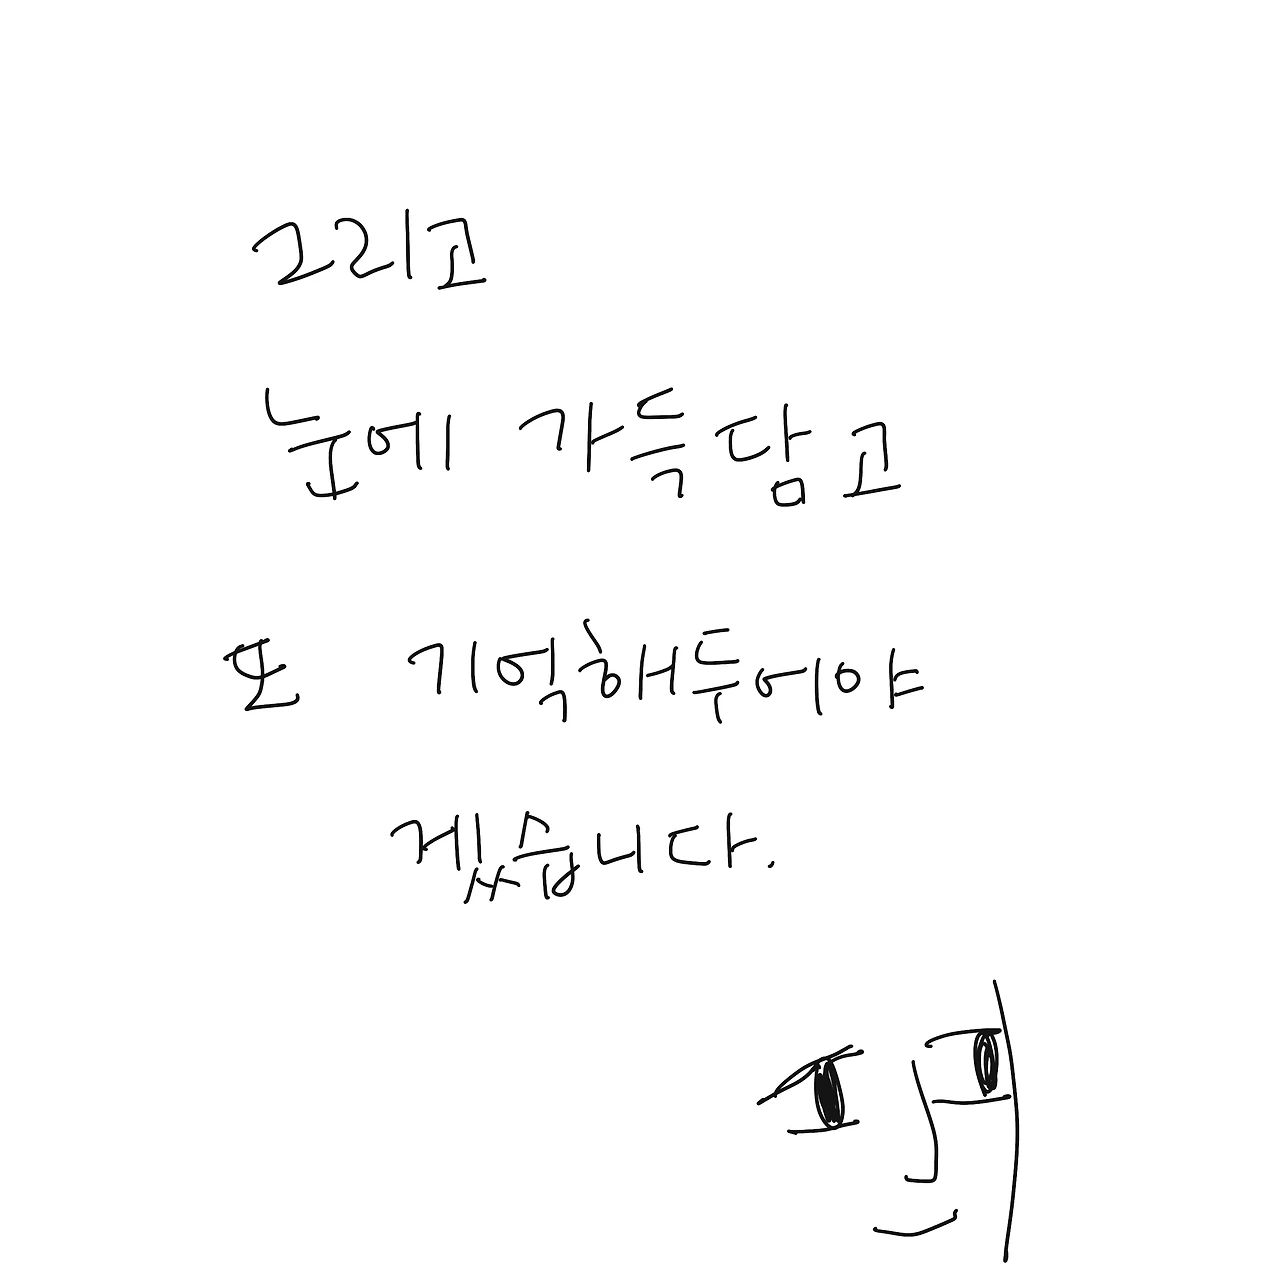 그리고
눈에 가득담고
또 기억해두어야
겠습니다.